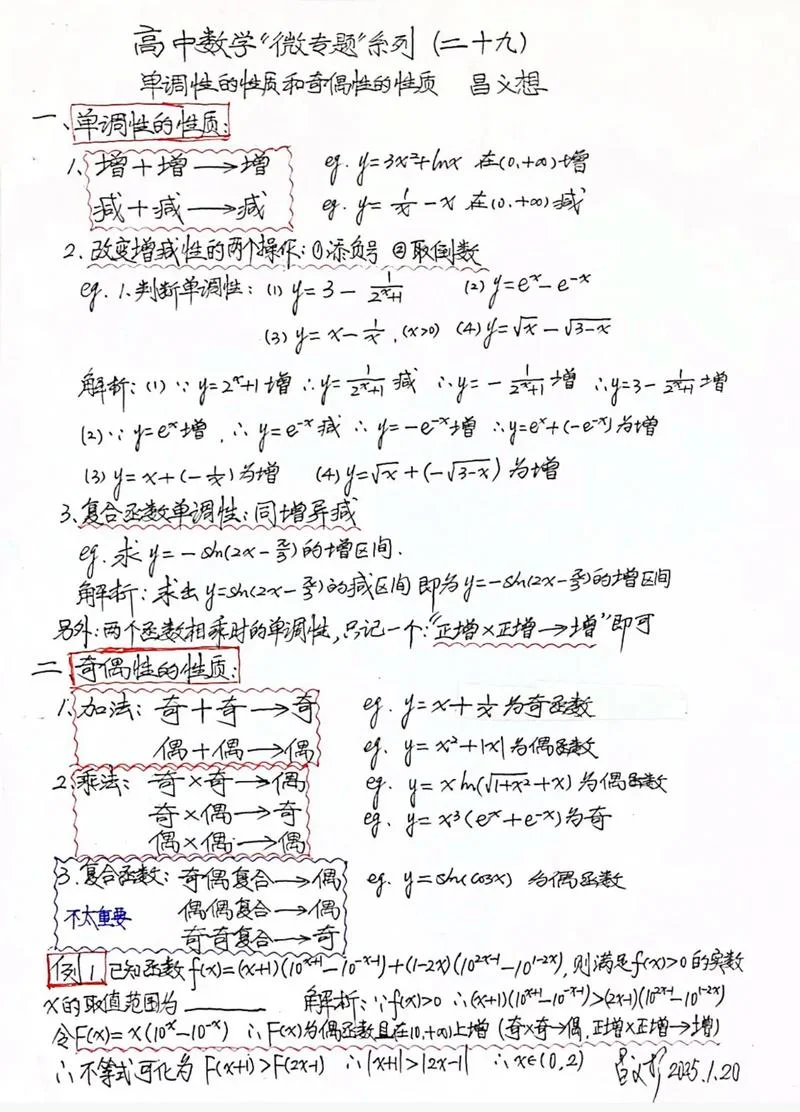 高中数学“微专题”系列（二十九）
单调性的性质和奇偶性的性质 昌义想
一、单调性的性质：
1、增＋增→增 eg. y=3x²+lnx 在(0,+∞)增
减＋减→减 eg. y=1/x-x 在(0,+∞)减
2. 改变增减性的两个操作：①添负号 ②取倒数
eg. 1.判断单调性：(1) y=3-1/(2^x+1) (2) y=e^x-e^-x
(3) y=x-1/x, (x>0) (4) y=√x-√(3-x)
解析：(1) ∵ y=2^x+1增 ∴y=1/(2^x+1)减 ∴y=-1/(2^x+1)增 ∴y=3-1/(2^x+1)增
(2)∵ y=e^x增, ∴ y=e^-x减 ∴ y=-e^-x增 ∴y=e^x+(-e^-x)为增
(3) y=x+(-1/x)为增 (4) y=√x+(-√(3-x))为增
3.复合函数单调性：同增异减
eg. 求 y=-sin(2x-π/3)的增区间.
解析：求出y=sin(2x-π/3)的减区间即为y=-sin(2x-π/3)的增区间
另外：两个函数相乘时的单调性,只记一个：“正增×正增→增”即可
二 奇偶性的性质：
1、加法：奇＋奇→奇 eg. y=x+1/x 为奇函数
偶＋偶→偶 eg. y=x²+|x|为偶函数
2.乘法：奇×奇→偶 eg. y=xln(√(1+x²)+x)为偶函数
奇×偶→奇 eg. y=x³(e^x+e^-x)为奇
偶×偶→偶
3.复合函数：奇偶复合→偶 eg. y=sin(cosx) 为偶函数
不太重要 偶偶复合→偶
奇奇复合→奇
例1 已知函数f(x)=(x+1)(10^(x+1)-10^(-x-1))+(1-2x)(10^(2x-1)-10^(1-2x)),则满足f(x)>0的实数
x的取值范围为______ 解析：∵f(x)>0 ∴(x+1)(10^(x+1)-10^(-x-1))>(2x-1)(10^(2x-1)-10^(1-2x))
令F(x)=x(10^x-10^-x) ∴F(x)为偶函数且在(0,+∞)上增（奇×奇→偶,正增×正增→增）
∴不等式可化为 F(x+1)>F(2x-1) ∴|x+1|>|2x-1| ∴x∈(0,2) 昌义想 2025.1.20